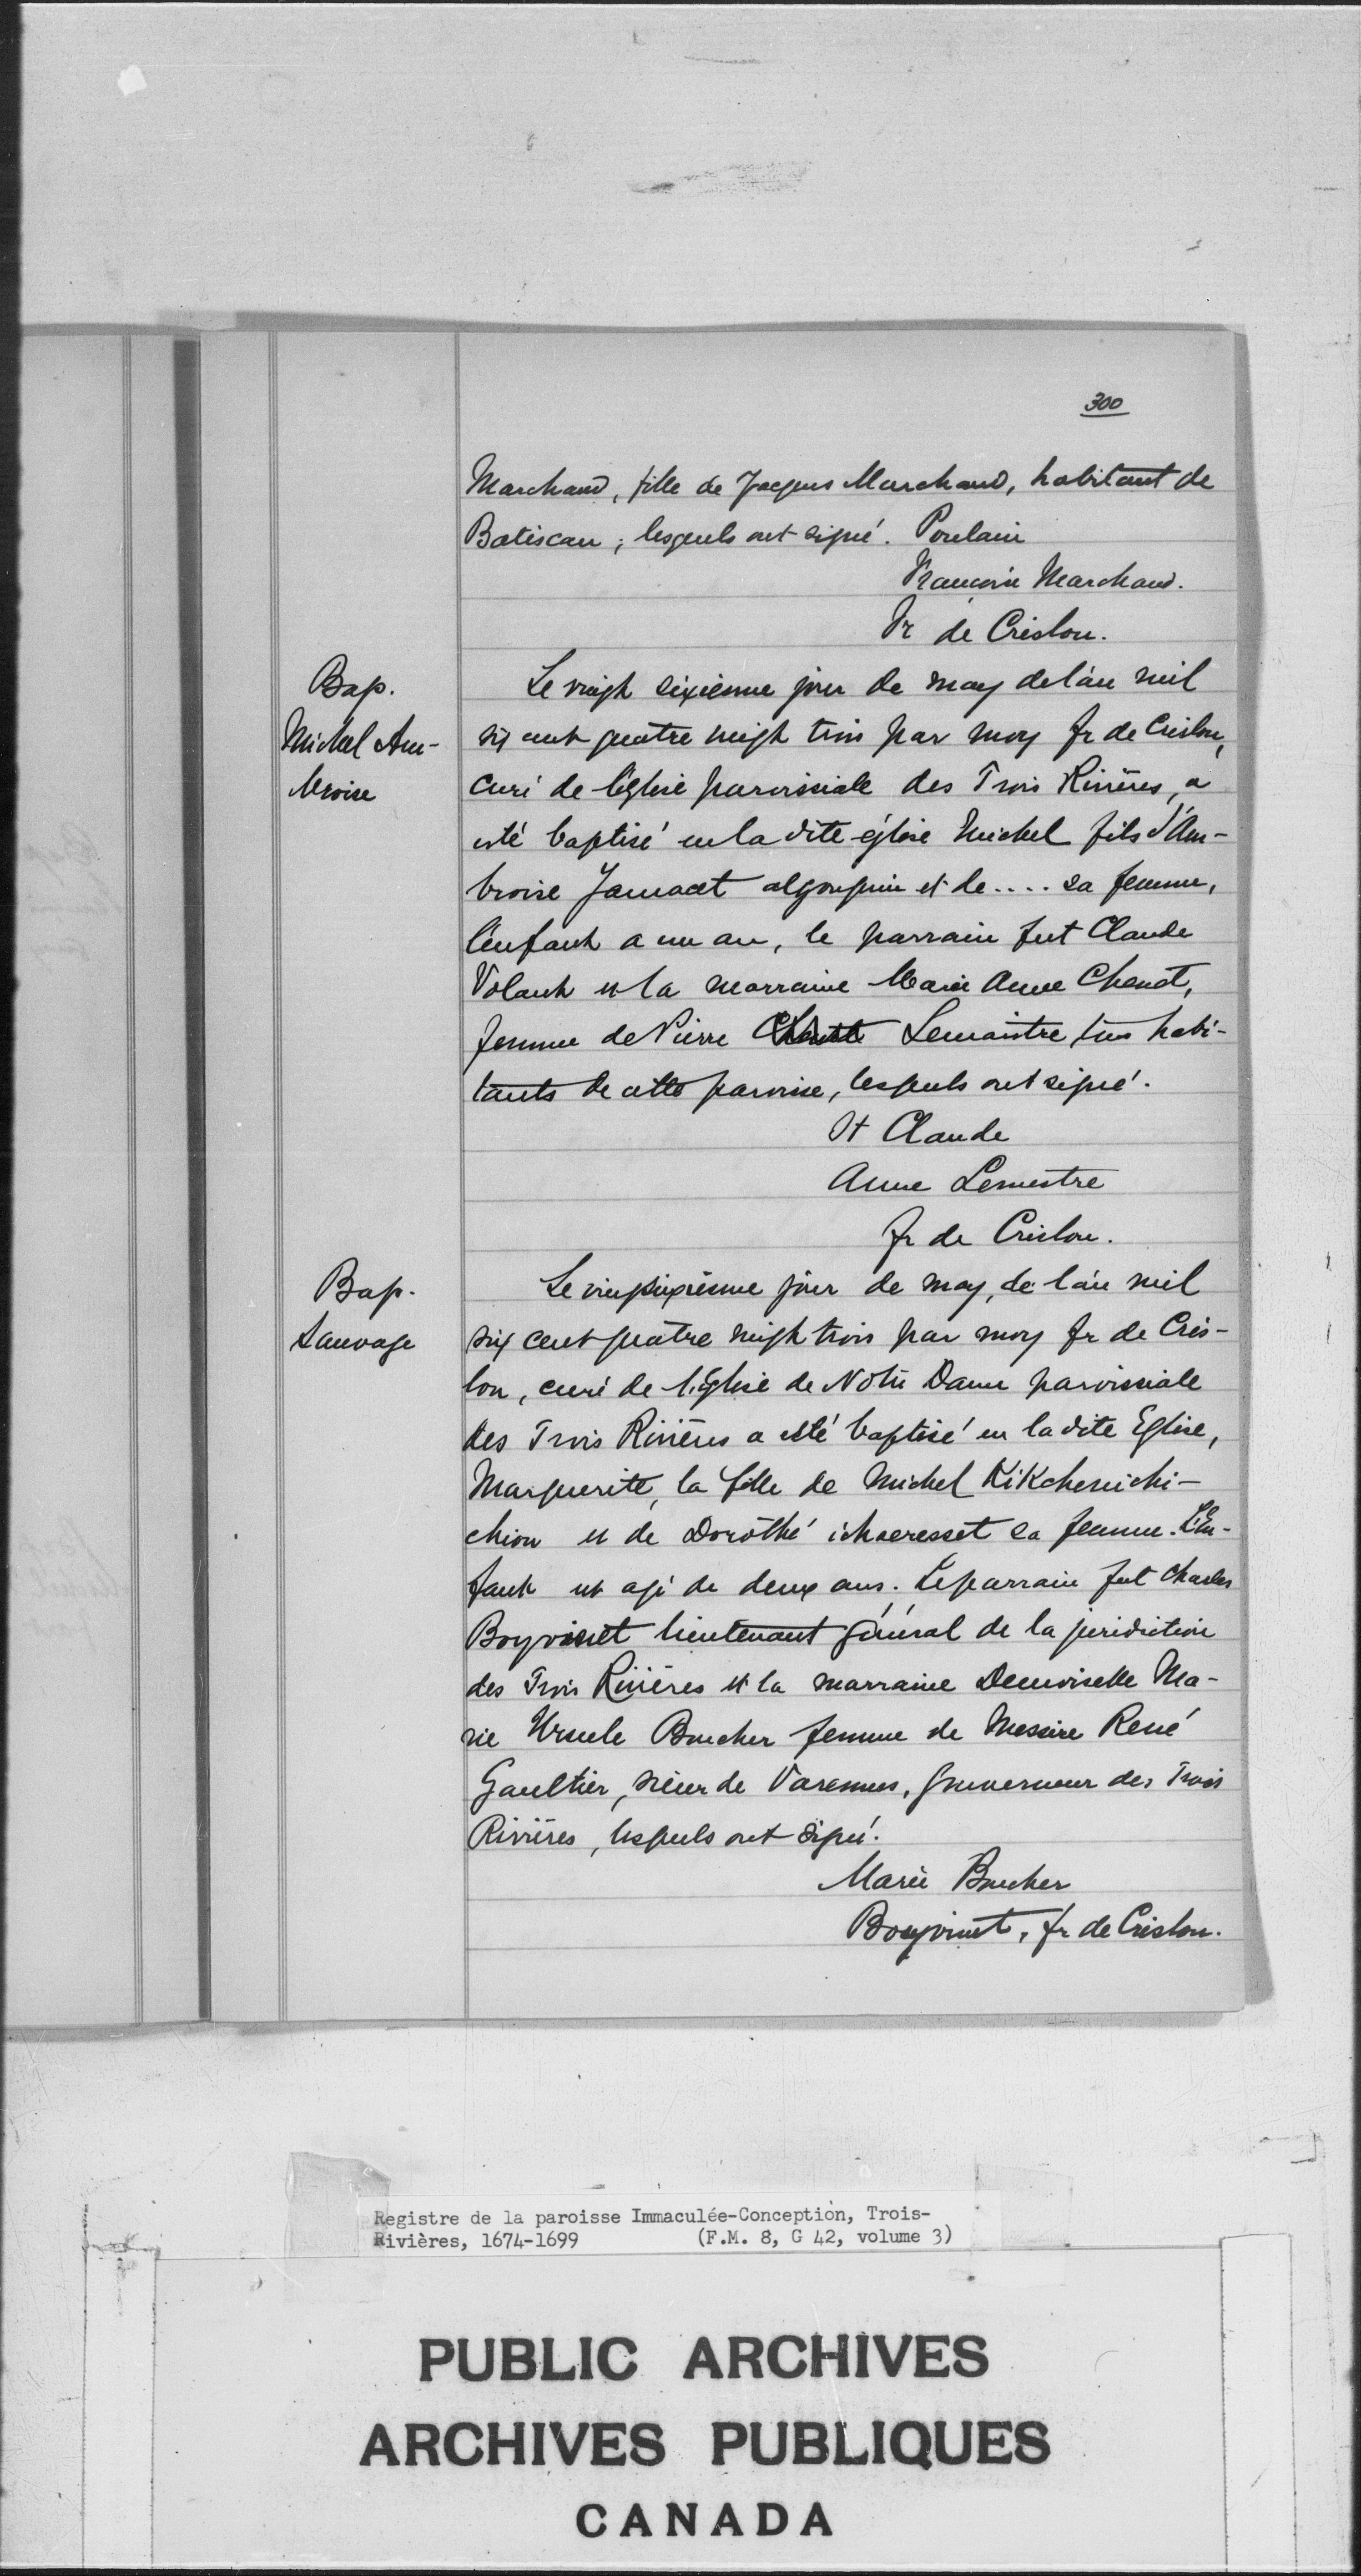 300
Marchand, fille de Jacques Marchand, habitant de
Batiscan; lesquels ont signé. Poulain
Francoise Marchand.
Fr de Creslon.
Bap.
Michel Am-
broise
Le vingh sixiesme jour de may de l'an mil
six cent quatre vingh trois par moy fr de Creslon,
curé de l'église paroissiale des Trois Rivières, a
esté baptisé en la dite église Michel fils d'Am-
broise Jamacet algonquin et de.... sa femme,
l'enfant a un an, le parrain fut Claude
Volant et la marraine Marie Anne Chenet,
femme de Pierre Lemaistre tous habi-
tants de cette paroisse, lesquels ont signé.
St Claude
Anne Lemestre
fr de Creslon.
Bap.
Sauvage
Le vingsixiesme jour de may, de l'an mil
six cent quatre vingh trois par moy fr de Cres-
lon, curé de l'Eglise de Notre Dame paroissiale
des Trois Rivières a esté baptisé en la dite Eglise,
Marguerite, la fille de Michel Kikchenichi-
chion et de Dorothé ichaeresset sa femme. L'En-
fant est agé de deux ans. Le parrain fut Charles
Boyvinet lieutenant général de la juridiction
des Trois Rivières et la marraine Demoiselle Ma-
rie Ursule Boucher femme de Messire René
Gaultier, sieur de Varennes, Gouverneur des Trois
Rivières, lesquels ont signé.
Marie Boucher
Boyvinet, fr de Creslon.
Registre de la paroisse Immaculée-Conception, Trois-
Rivières, 1674-1699 (F.M. 8, G 42, volume 3)
PUBLIC ARCHIVES
ARCHIVES PUBLIQUES
CANADA